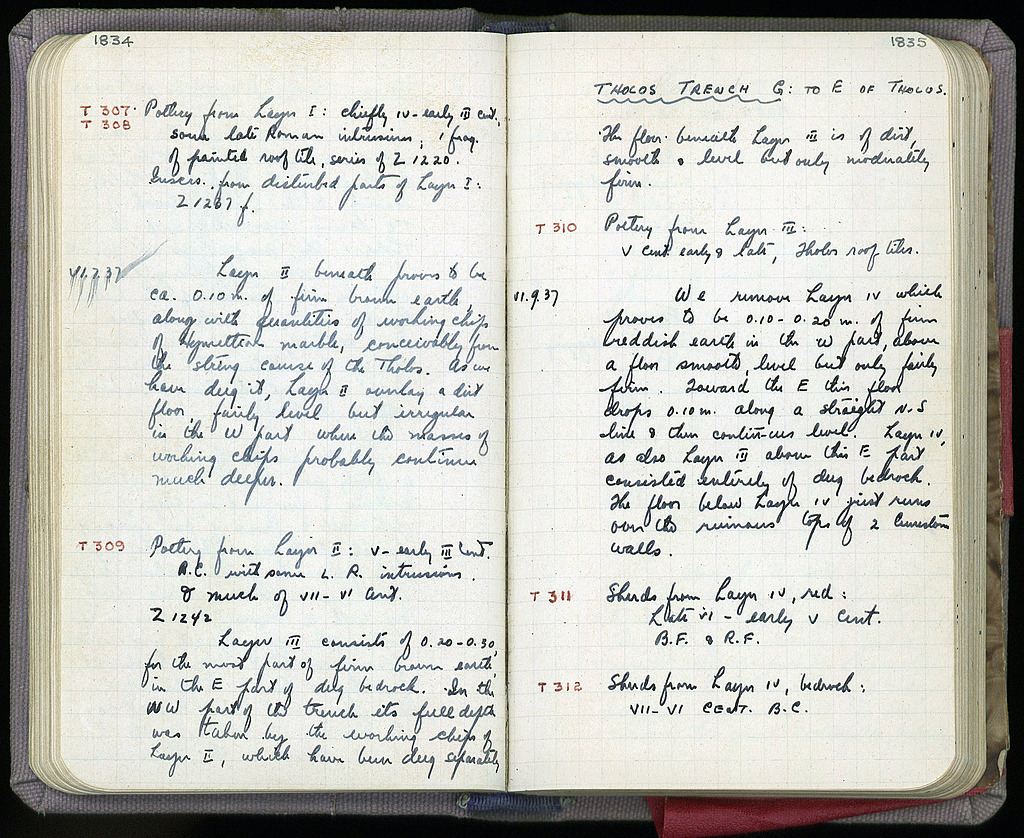 1834
T 307 Pottery from Layer I: chiefly IV - early III cent,
T 308 some late Roman intrusions; 1 frag.
of painted roof tile, series of Z 1220.
Inscrs. from disturbed parts of Layer I:
Z 1237 f.
VI.7.37 Layer II beneath proves to be
ca. 0.10 m. of firm brown earth,
along with quantities of working chips
of Hymettian marble, conceivably from
the string course of the Tholos. As we
have dug it, Layer II overlay a dirt
floor, fairly level but irregular
in the W part where the masses of
working chips probably continue
much deeper.
T 309 Pottery from Layer II: V - early III Cent.
B.C. with some L. R. intrusions.
& much of VII - VI Cent.
Z 1242
Layer III consists of 0.20 - 0.30,
for the most part of firm brown earth,
in the E part of dug bedrock. In the
NW part of the trench its full depth
was taken by the working chips of
Layer II, which have been dug separately
1835
THOLOS TRENCH G: TO E OF THOLOS.
The floor beneath Layer III is of dirt,
smooth & level but only moderately
firm.
T 310 Pottery from Layer III:
V cent. early & late, Tholos roof tiles.
VI.9.37 We remove Layer IV which
proves to be 0.10 - 0.20 m. of firm
reddish earth in the W part, above
a floor smooth, level but only fairly
firm. Toward the E this floor
drops 0.10 m. along a straight N-S
line & then continues level. Layer IV,
as also Layer III above this E part
consisted entirely of dug bedrock.
The floor below Layer IV just runs
over the ruinous tops of 2 limestone
walls.
T 311 Sherds from Layer IV, red:
Late VI - early V Cent.
B.F. & R.F.
T 312 Sherds from Layer IV, bedrock:
VII - VI CENT. B.C.